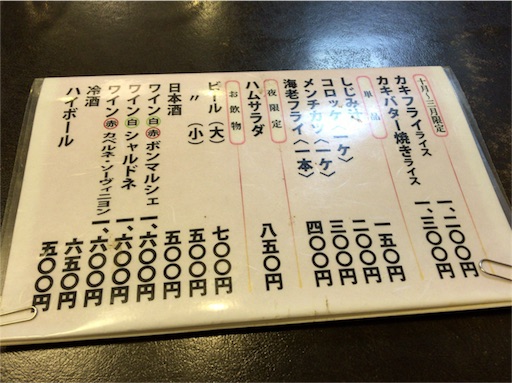 十月～三月限定
カキフライライス 一、二〇〇円
カキバター焼きライス 一、三〇〇円
単品
しじみ汁 一五〇円
コロッケ〈一ケ〉 二〇〇円
メンチカツ〈一ケ〉 三〇〇円
海老フライ〈一本〉 四〇〇円
夜限定
ハムサラダ 八五〇円
お飲物
ビール（大） 七〇〇円
〃（小） 五〇〇円
日本酒 五〇〇円
ワイン白赤ボンマルシェ 一、六〇〇円
ワイン白シャルドネ 一、六〇〇円
ワイン赤カベルネ・ソーヴィニヨン 一、六〇〇円
冷酒 六五〇円
ハイボール 五〇〇円